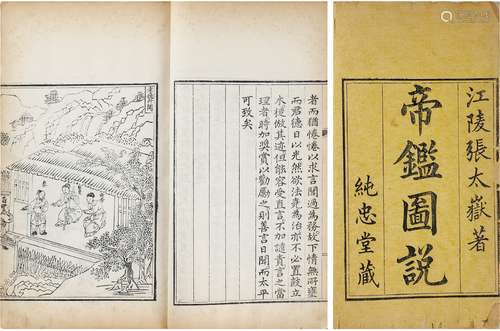 江陵張太嶽著
帝鑑圖說
純忠堂藏
者而猶惓惓以求言聞過為務故下情無所壅
而君德日以光然欲法堯為治亦不必置鼓立
木徒倣其迹但能容受直言不加譴責言之當
理者時加獎賞以勸勵之則善言日聞而太平
可致矣